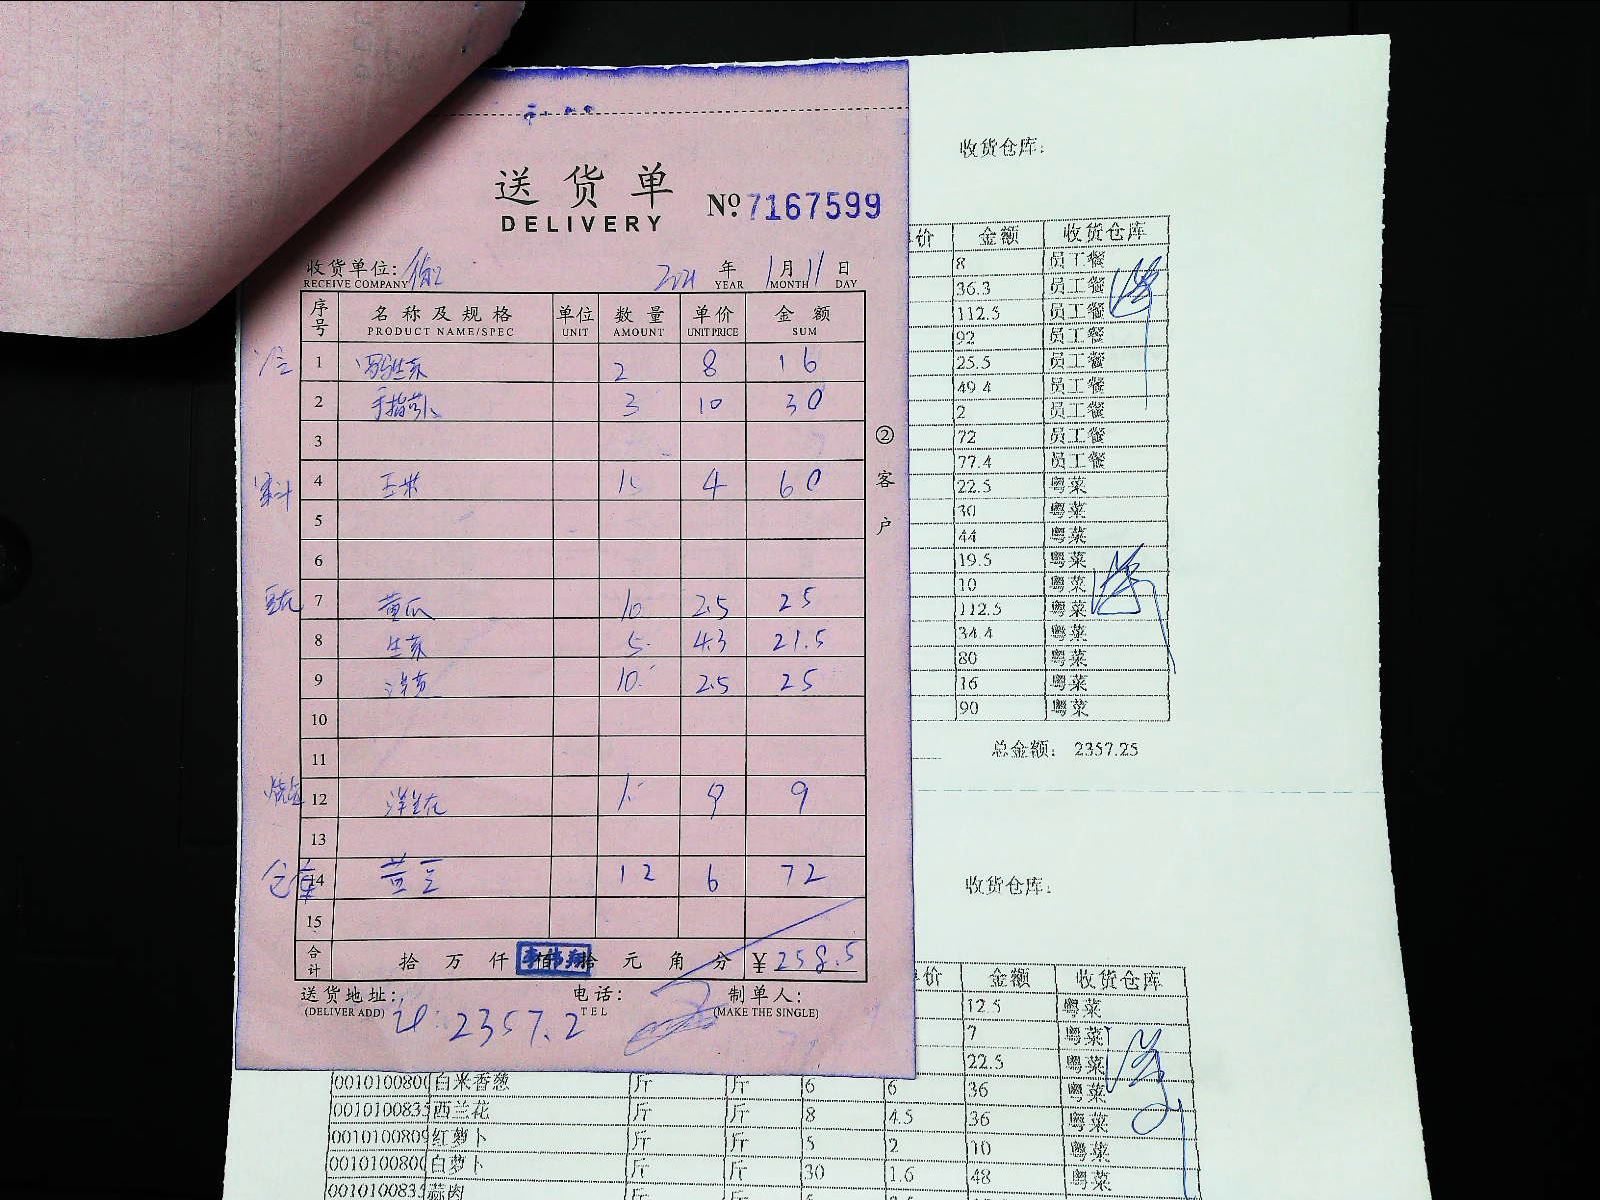 送货单
DELIVERY
No 7167599
收货单位:
RECEIVE COMPANY
2021 年 1 月 11 日
YEAR MONTH DAY
序号 名称及规格 单位 数量 单价 金额
PRODUCT NAME/SPEC UNIT AMOUNT UNIT PRICE SUM
1 罗马生菜 2 8 16
2 手指萝卜 3 10 30
3
4 玉米 15 4 60
5
6
7 黄瓜 10 2.5 25
8 生菜 5 4.3 21.5
9 洋葱 10 2.5 25
10
11
12 洋兰花 1 9 9
13
仓库 14 黄豆 12 6 72
15
合计 拾 万 仟 佰 拾 元 角 分 ¥258.5
②客户
送货地址: 电话: 制单人:
(DELIVER ADD) TEL (MAKE THE SINGLE)
2357.2
收货仓库:
价 金额 收货仓库
8 员工餐
36.3 员工餐
112.5 员工餐
92 员工餐
25.5 员工餐
49.4 员工餐
2 员工餐
72 员工餐
77.4 员工餐
22.5 粤菜
30 粤菜
44 粤菜
19.5 粤菜
10 粤菜
112.5 粤菜
34.4 粤菜
80 粤菜
16 粤菜
90 粤菜
总金额: 2357.25
收货仓库:
价 金额 收货仓库
12.5 粤菜
7 粤菜
22.5 粤菜
0010100800 白米香葱 斤 斤 6 6 36 粤菜
0010100835 西兰花 斤 斤 8 4.5 36 粤菜
0010100809 红萝卜 斤 斤 5 2 10 粤菜
0010100800 白萝卜 斤 斤 30 1.6 48 粤菜
0010100835 蒜肉 斤 斤